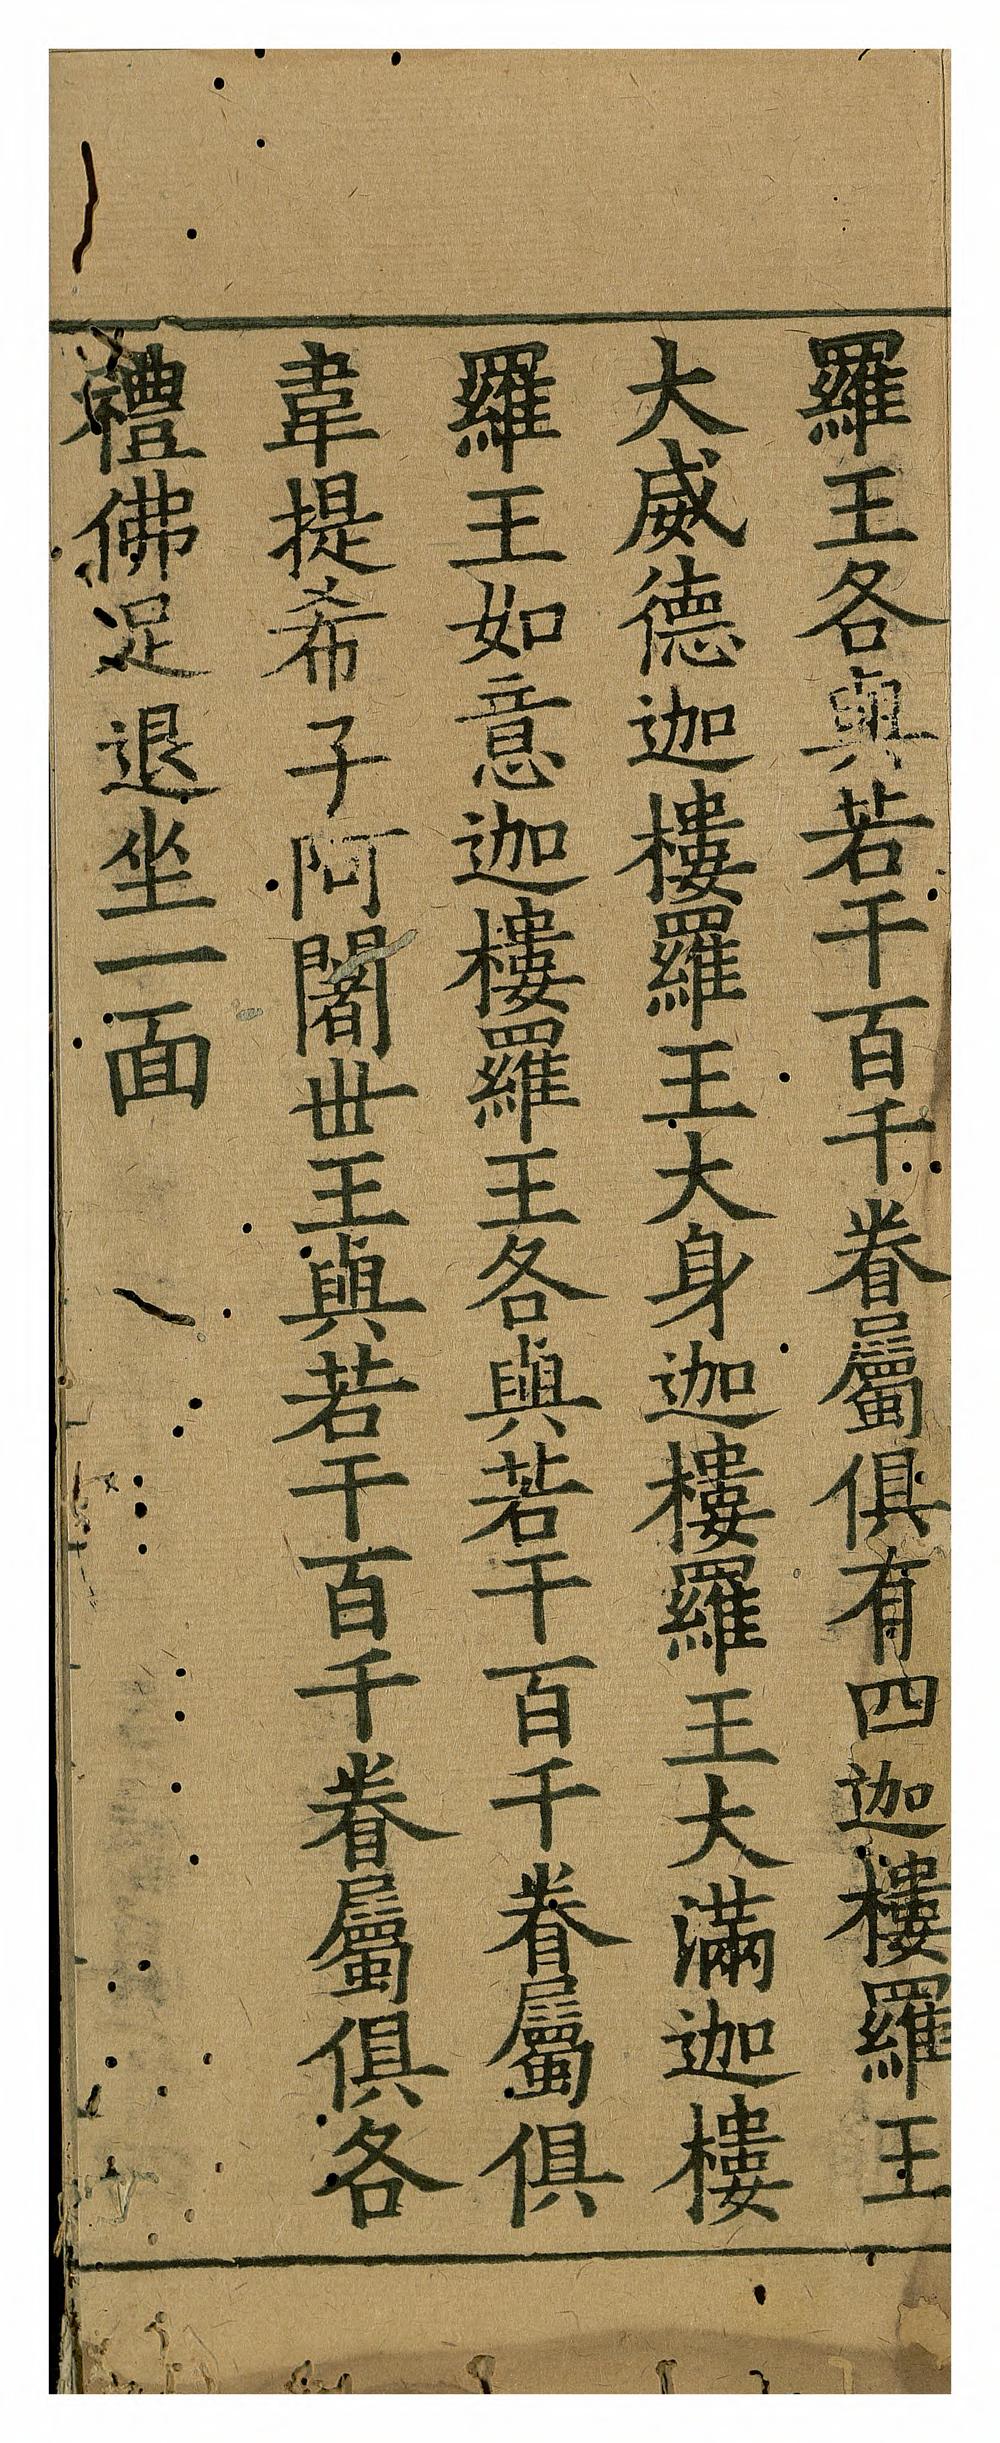 羅王各與若干百千眷屬俱有四迦樓羅王
大威德迦樓羅王大身迦樓羅王大滿迦樓
羅王如意迦樓羅王各與若干百千眷屬俱
韋提希子阿闍世王與若干百千眷屬俱各
禮佛足退坐一面